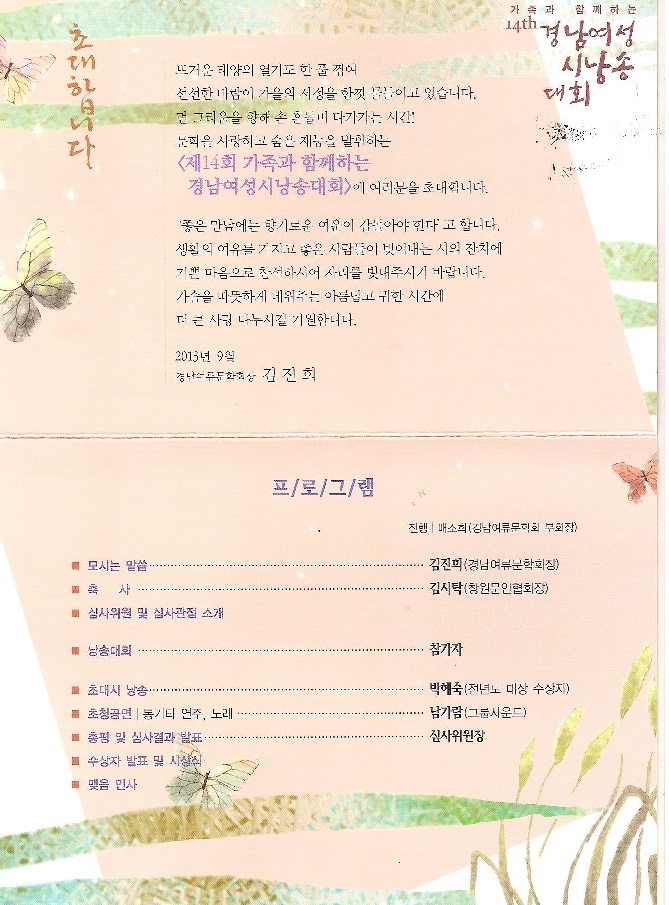 초대합니다
가족과 함께하는
14th 경남여성
시낭송
대회
뜨거운 태양의 열기도 한 풀 꺾여
선선한 바람이 가을의 서정을 한껏 북돋우고 있습니다.
먼 그리움을 향해 손 흔들며 다가가는 시간!
문학을 사랑하고 숨은 재능을 발휘하는
〈제14회 가족과 함께하는
경남여성시낭송대회〉에 여러분을 초대합니다.
'좋은 만남에는 향기로운 여운이 감돌아야 한다' 고 합니다.
생활의 여유를 가지고 좋은 사람들이 빚어내는 시의 잔치에
기쁜 마음으로 참석하시어 자리를 빛내주시기 바랍니다.
가슴을 따뜻하게 데워주는 아름답고 귀한 시간에
더 큰 사랑 나누시길 기원합니다.
2013년 9월
경남여류문학회장 김 진 희
프/로/그/램
진행 | 배소희(경남여류문학회 부회장)
모시는 말씀 김진희(경남여류문학회장)
축 사 김시탁(창원문인협회장)
심사위원 및 심사관점 소개
낭송대회 참가자
초대시 낭송 박혜숙(전년도 대상 수상자)
초청공연 | 통기타 연주, 노래 남가람(그룹사운드)
총평 및 심사결과 발표 심사위원장
수상자 발표 및 시상식
맺음 인사